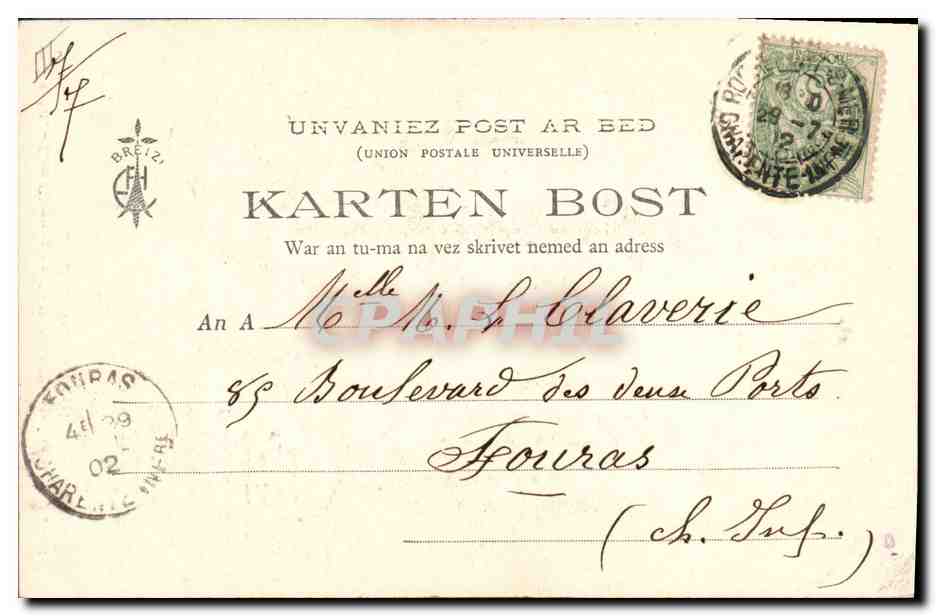 UNVANIEZ POST AR BED
(UNION POSTALE UNIVERSELLE)
BREIZ
KARTEN BOST
War an tu-ma na vez skrivet nemed an adress
An A Melle M. L Claverie
85 Boulevard des deux Ports
Fouras
(Ch. Inf.)
CPAPHIL
FOURAS
4E 29
02
CHARENTE INFRE
29 -7
CHARENTE-INFRE